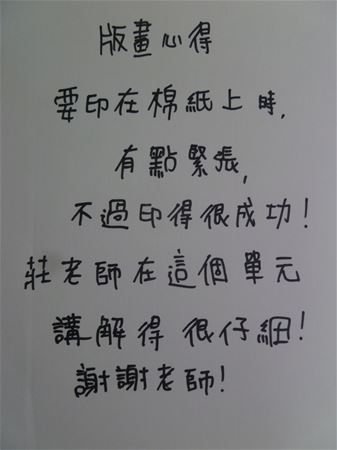 版畫心得
要印在棉紙上時,
有點緊張,
不過印得很成功!
莊老師在這個單元
講解得很仔細!
謝謝老師!